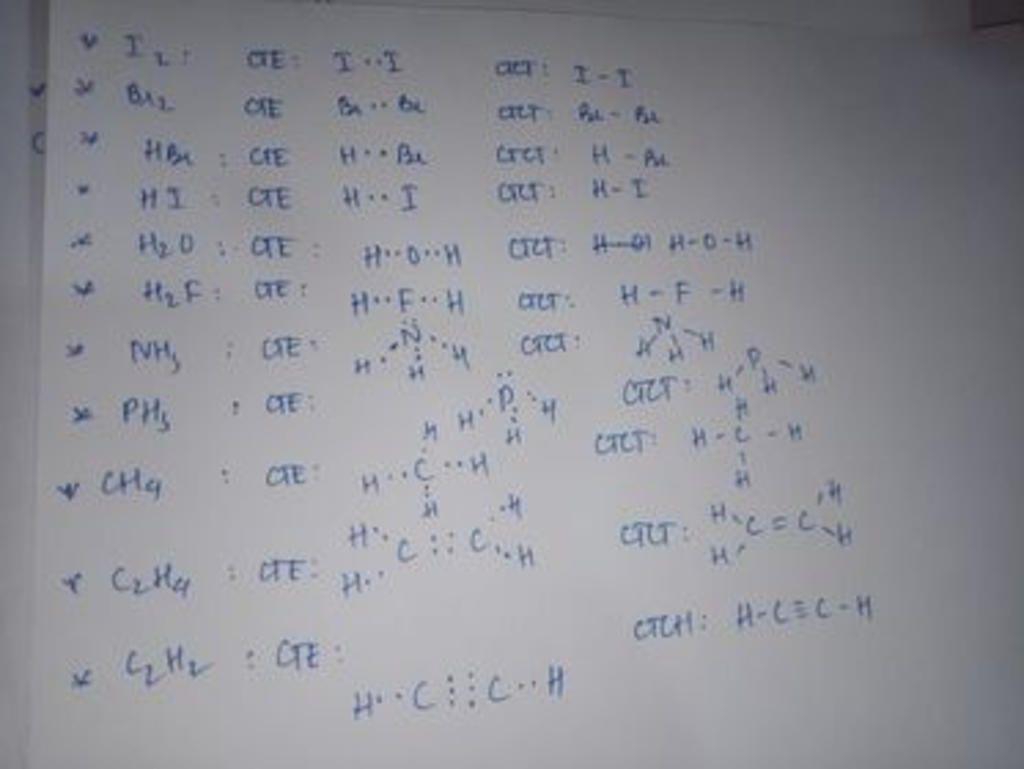 * I2: CTE: I··I CTCT: I-I
* Br2 CTE Br··Br CTCT: Br-Br
* HBr: CTE H··Br CTCT: H-Br
* HI: CTE H··I CTCT: H-I
* H2O: CTE: H··O··H CTCT: H-O-H
* H2F: CTE: H··F··H CTCT: H-F-H
* NH3: CTE: N H H H CTCT: N H H H
* PH3: CTE: P H H H CTCT: P H H H
* CH4: CTE: H H··C··H H CTCT: H H-C-H H
* C2H4: CTE: H H C::C H H CTCT: H H C=C H H
* C2H2: CTE: H··C⋮⋮C··H CTCH: H-C≡C-H